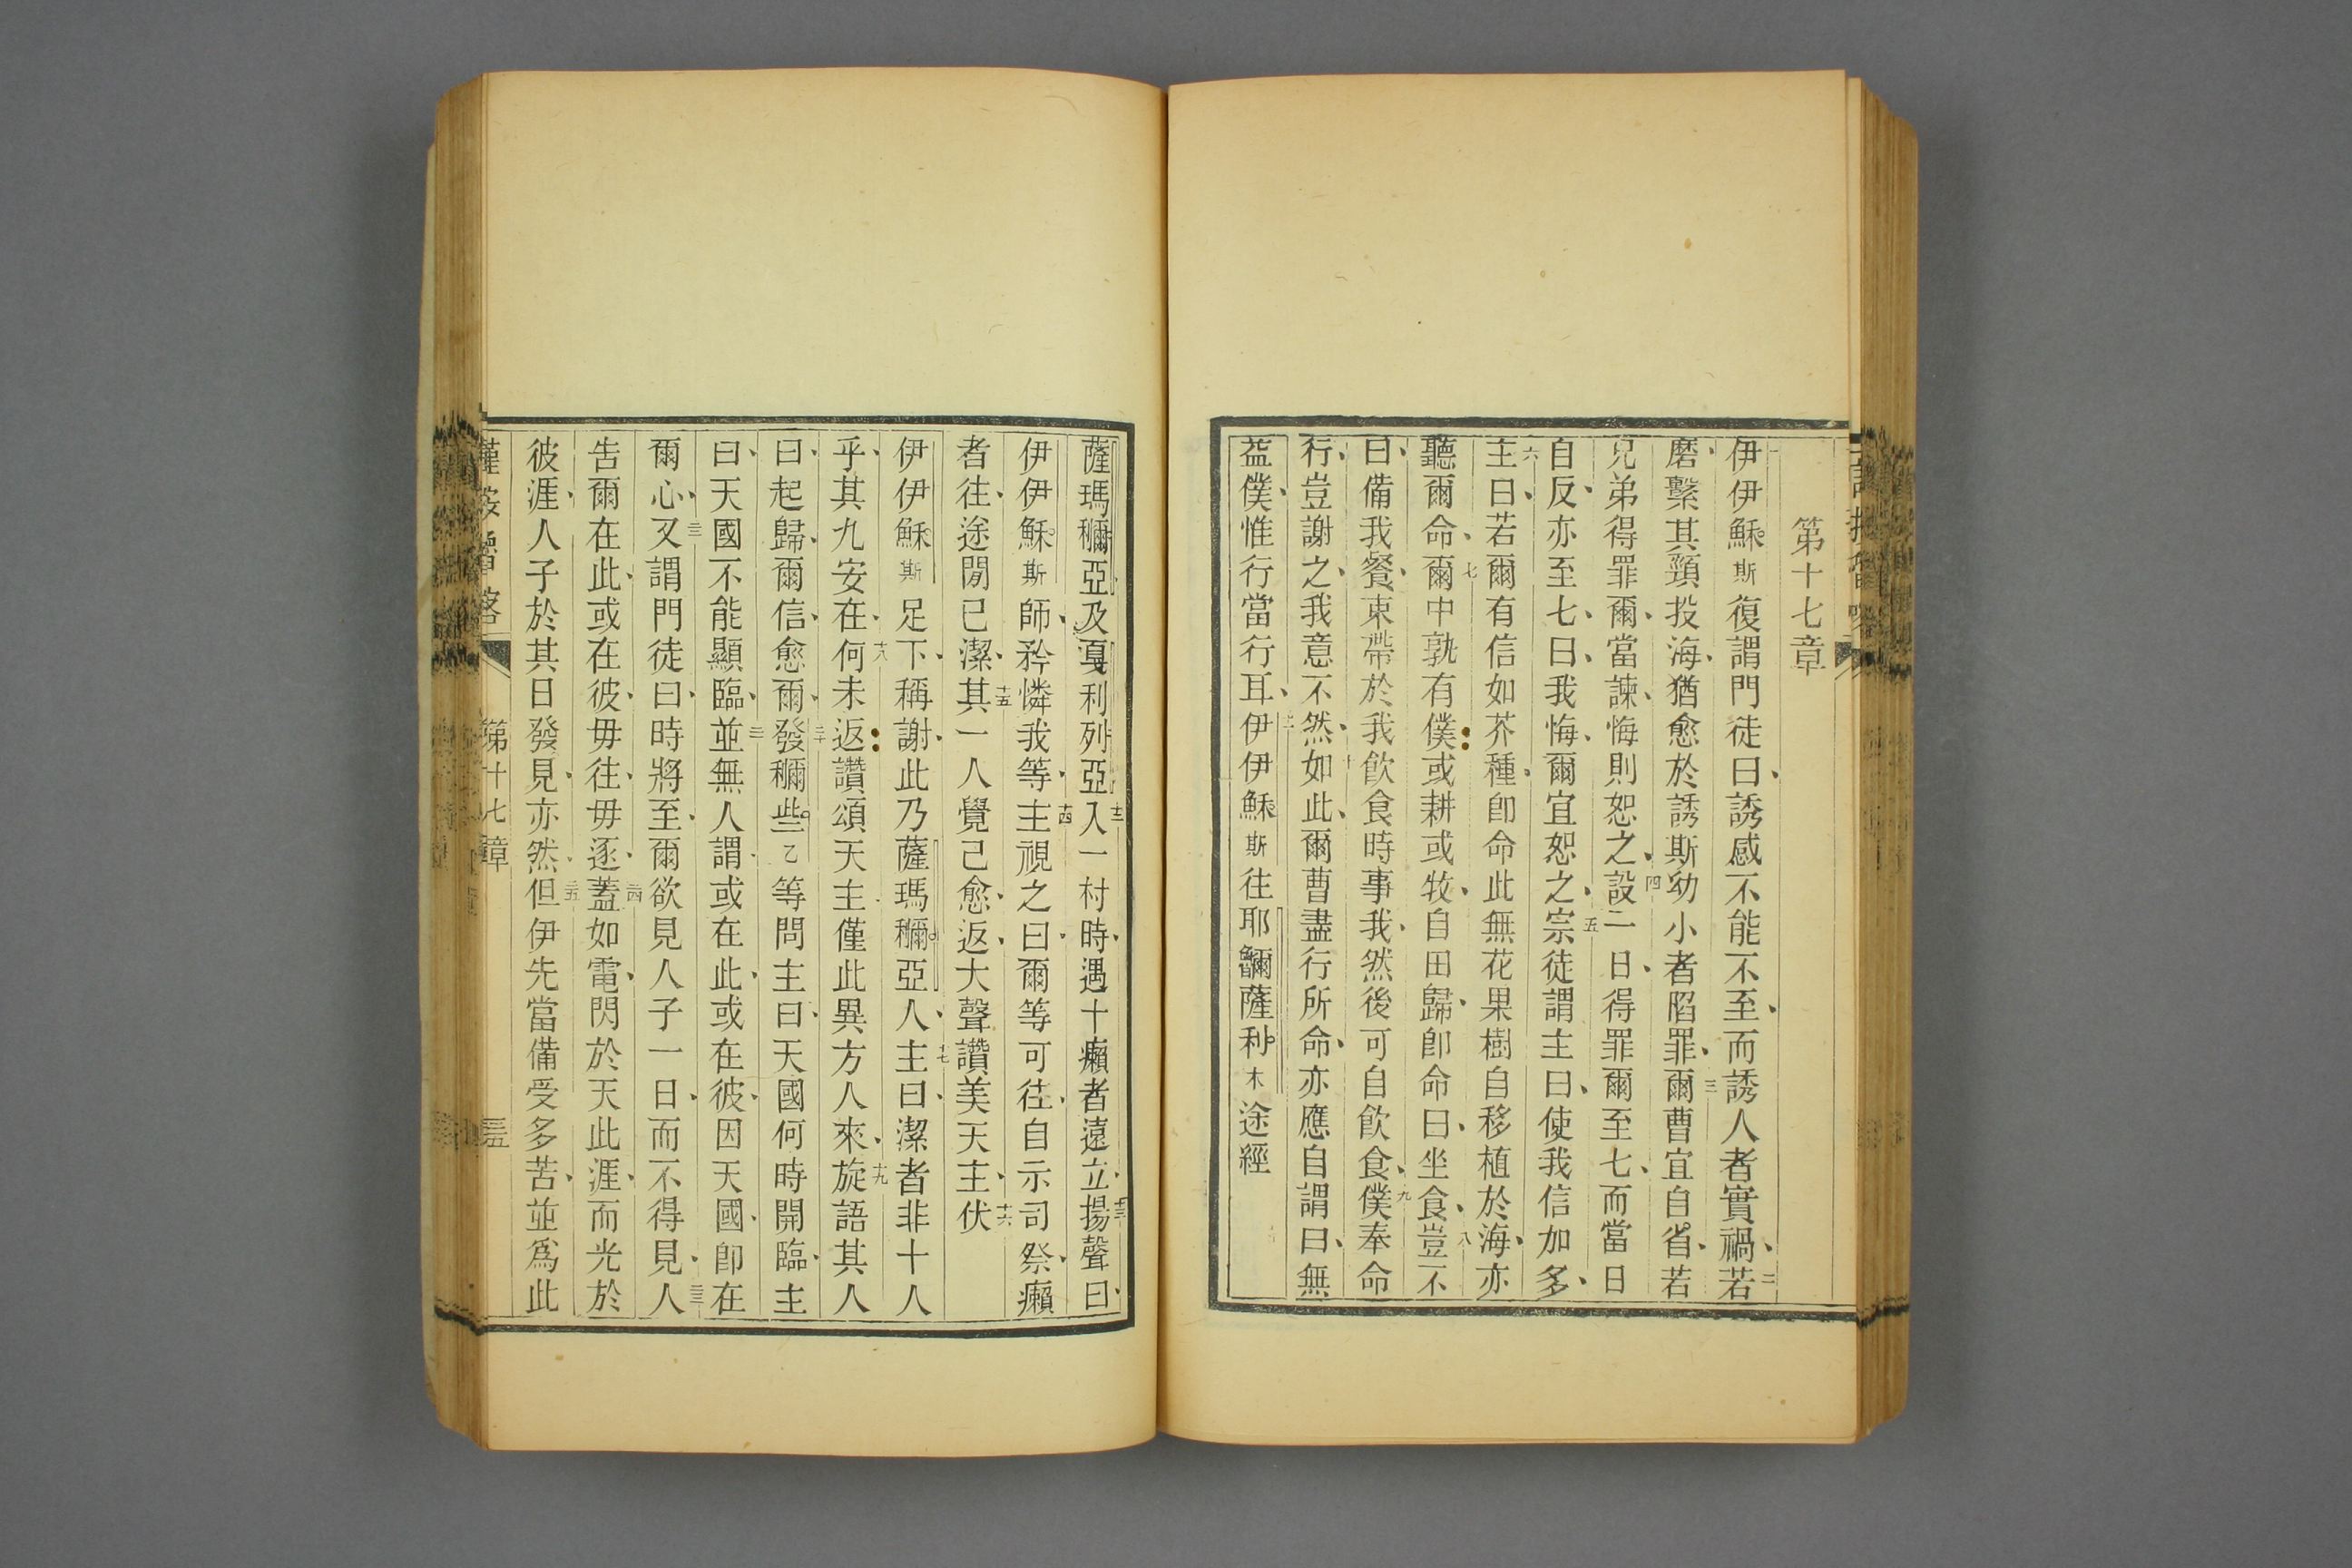 第十七章
一伊伊穌斯復謂門徒曰、誘惑不能不至、而誘人者實禍、二若
磨、繫其頸投海、猶愈於誘斯幼小者陷罪、三爾曹宜自省、若
兄弟得罪爾、當諫、悔則恕之、四設一日、得罪爾至七、而當日
自反、亦至七、曰、我悔、爾宜恕之、五宗徒謂主曰、使我信加多、
六主曰、若爾有信如芥種、卽命此無花果樹自移植於海、亦
聽爾命、七爾中孰有僕、或耕或牧、自田歸、卽命曰、坐食、八豈不
曰、備我餐、束帶於我飮食時事我、然後可自飮食、九僕奉命
行、豈謝之、我意不然、十如此、爾曹盡行所命、亦應自謂曰、無
益僕、惟行當行耳、十一伊伊穌斯往耶𪐀薩利木途經
薩瑪稱亞及戛利列亞、十二入一村時、遇十癩者遠立、十三揚聲曰、
伊伊穌斯師、矜憐我等、十四主視之曰、爾等可往、自示司祭、癩
者往、途閒已潔、十五其一人覺己愈、返、大聲讚美天主、十六伏
伊伊穌斯足下、稱謝、此乃薩瑪稱亞人、十七主曰、潔者非十人
乎、其九安在、十八何未返讚頌天主、僅此異方人來、十九旋語其人
曰、起歸、爾信愈爾、二十發稱些乙等問主曰、天國何時開臨、主
曰、天國不能顯臨、二一並無人謂、或在此、或在彼、因天國卽在
爾心、二二又謂門徒曰、時將至、爾欲見人子一日、而不得見、二三人
吿爾在此、或在彼、毋往、毋逐、二四蓋如電、閃於天此涯、而光於
彼涯、人子於其日發見、亦然、二五但伊先當備受多苦、並爲此
第十七章